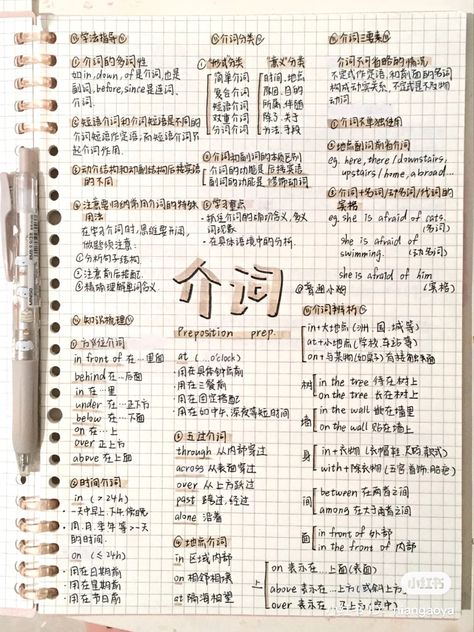 学法指导
① 介词的多词性
如in, down, of是介词,也是
副词, before, since是连词、
介词.
② 短语介词和介词短语是不同的
介词短语作定语;而短语介词只
起介词作用.
③ 动介结构和动副结构后接宾语
的不同
④ 注意要归纳常用介词的特殊
用法
在学习介词时,思维要开阔,
做题须注意:
① 分析句子结构.
② 注意前后搭配.
③ 精确理解单词含义.
知识梳理
① 方位介词
in front of 在…里面
behind 在…后面
in 在…里
under 在…正下方
below 在…下面
on 在…上
over 正上方
above 在上面
② 时间介词
in (>24h)
·一天中早上.下午.傍晚
·周.月.学年等>一天
的时间.
on (≤24h)
·用在日期前
·用在星期前
·用在节日前
介词分类
形式分类
简单介词
复合介词
短语介词
双重介词
分词介词
意义分类
时间.地点
原因.目的
所属.伴随
除了.关于
方法.手段
② 介词和副词的本质区别
介词的功能是后接宾语
副词的功能是修饰动词
③ 学习重点
·抓住介词的动词含义,多义
词现象
·在具体语境中的分析.
介词
Preposition prep.
at (…o'clock)
·用在具体钟点前
·用在三餐前
·用在固定搭配
·用在如中午,深夜等短时间
③ 五过介词
through 从内部穿过
across 从表面穿过
over 从上方跃过
past 路过,经过
alone 沿着
④ 地点介词
in 区域内部
on 相邻相接
at 隔海相望
介词三要素
介词不可省略的情况
不定式作定语,和前面的名词
构成动宾关系,不定式是不及物
动词.
① 介词不单独使用
② 地点副词前省介词
eg. here, there / downstairs,
upstairs / home, abroad…
③ 介词+名词/动名词/代词的
宾格
eg. she is afraid of cats.
(名词)
she is afraid of
swimming. (动名词)
she is afraid of him
(宾格)
介词辨析
in+大地点(洲.国.城等)
at+小地点(学校.车站等)
on+与某物(如桌子)有接触表面
树
in the tree 待在树上
on the tree 长在树上
墙
in the wall 嵌在墙里
on the wall 贴在墙上
身
in+衣物(衣帽鞋.尺码.款式)
with+除衣物(五官.首饰.脸色)
间
between 在两者之间
among 在大于两者之间
面
in front of 外部
in the front of 内部
上
on 表示在…上面(表面)
above 表示在…上方(或斜上方)
over 表示在…正上方(空中)
小红书